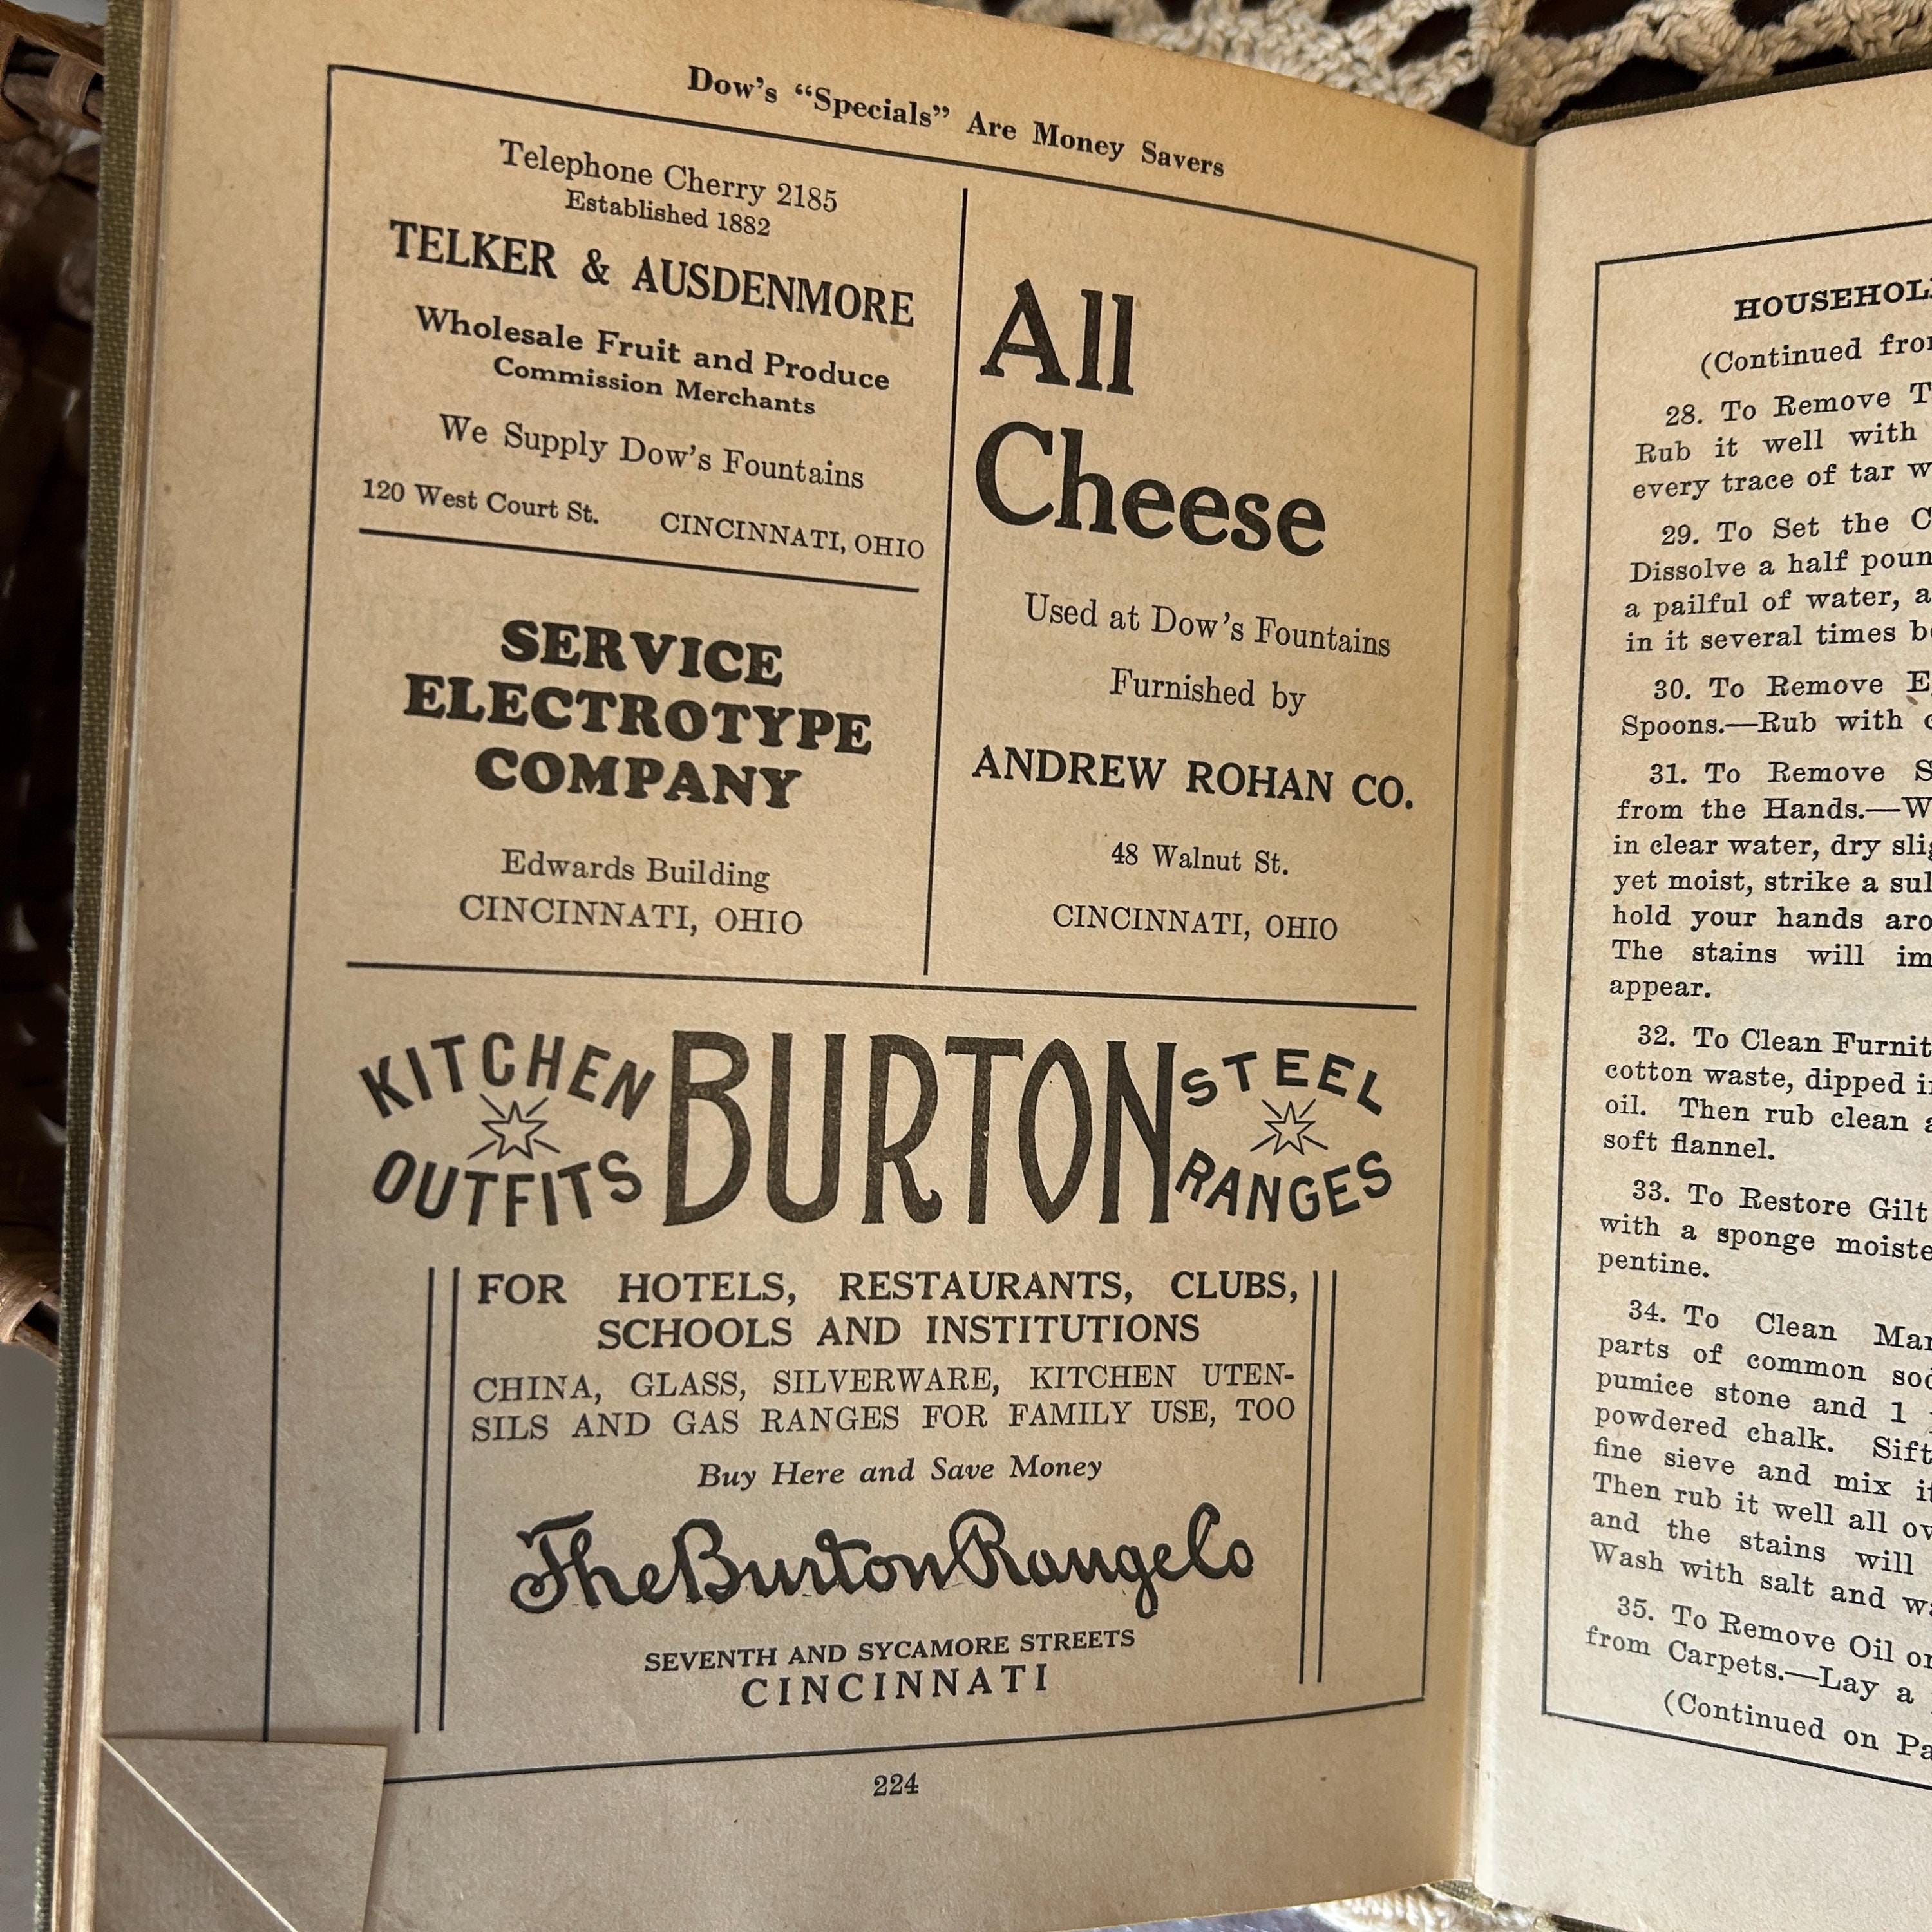 Dow's "Specials" Are Money Savers
Telephone Cherry 2185
Established 1882
TELKER & AUSDENMORE
Wholesale Fruit and Produce
Commission Merchants
We Supply Dow's Fountains
120 West Court St. CINCINNATI, OHIO
SERVICE
ELECTROTYPE
COMPANY
Edwards Building
CINCINNATI, OHIO
All
Cheese
Used at Dow's Fountains
Furnished by
ANDREW ROHAN CO.
48 Walnut St.
CINCINNATI, OHIO
KITCHEN
OUTFITS
BURTON
STEEL
RANGES
FOR HOTELS, RESTAURANTS, CLUBS,
SCHOOLS AND INSTITUTIONS
CHINA, GLASS, SILVERWARE, KITCHEN UTEN-
SILS AND GAS RANGES FOR FAMILY USE, TOO
Buy Here and Save Money
The Burton Range Co
SEVENTH AND SYCAMORE STREETS
CINCINNATI
224
(Continued
28. To Remove
Rub it well with
every trace of tar
29. To Set the
Dissolve a half
a pailful of water,
in it several times
30. To Remove
Spoons.—Rub with
31. To Remove
from the Hands.—
in clear water, dry
yet moist, strike a
hold your hands
The stains will
appear.
32. To Clean
cotton waste, dipped
oil. Then rub clean
soft flannel.
33. To Restore Gilt
with a sponge
pentine.
34. To Clean
parts of common
pumice stone and 1
powdered chalk. Sift
fine sieve and mix
Then rub it well all
and the stains will
Wash with salt and
35. To Remove Oil
from Carpets.—Lay a
(Continued on